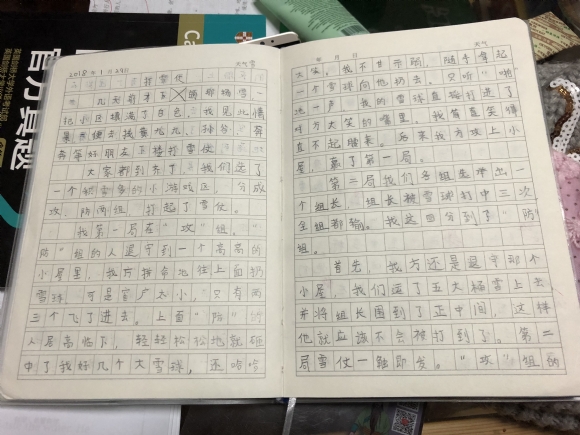 2018年1月29日
天气雪
打雪仗
几天前才下 那场雪一
把小区填满了白色。我见此情
景便去找黄九九、孙谷、蒋
奇等好朋友下楼打雪仗
大家都到齐了，我们选了
一个积雪多的小游戏区，分成
攻、防两组，打起了雪仗。
我第一局在"攻"组。"
防"组的人退守到一个高高的
小屋里，我方拼命地往上面扔
雪球，可是窗户太小，只有两
三个飞了进去。上面"防"的
人居高临下，轻轻松松地就砸
中了我好几个大雪球，还哈哈
年 月 日
天气
大笑。我不甘示弱，随手拿起
一个雪球向他扔去，只听"啪"
地一声，我的雪球直接打进了
对方大笑的嘴里。我简直笑得
直不起腰来。后来我方攻上小
屋，赢了第一局。
第二局我们各组先举出一
个组长，组长被雪球打中三次
全组都输。我这回分到了"防"
组。
首先，我方还是退守那个
小屋。我们运了五大桶雪上去
并将组长围到了正中间，这样
他就应该不会被打到了。第二
局雪仗一触即发。"攻"组的
官方真题
Ca